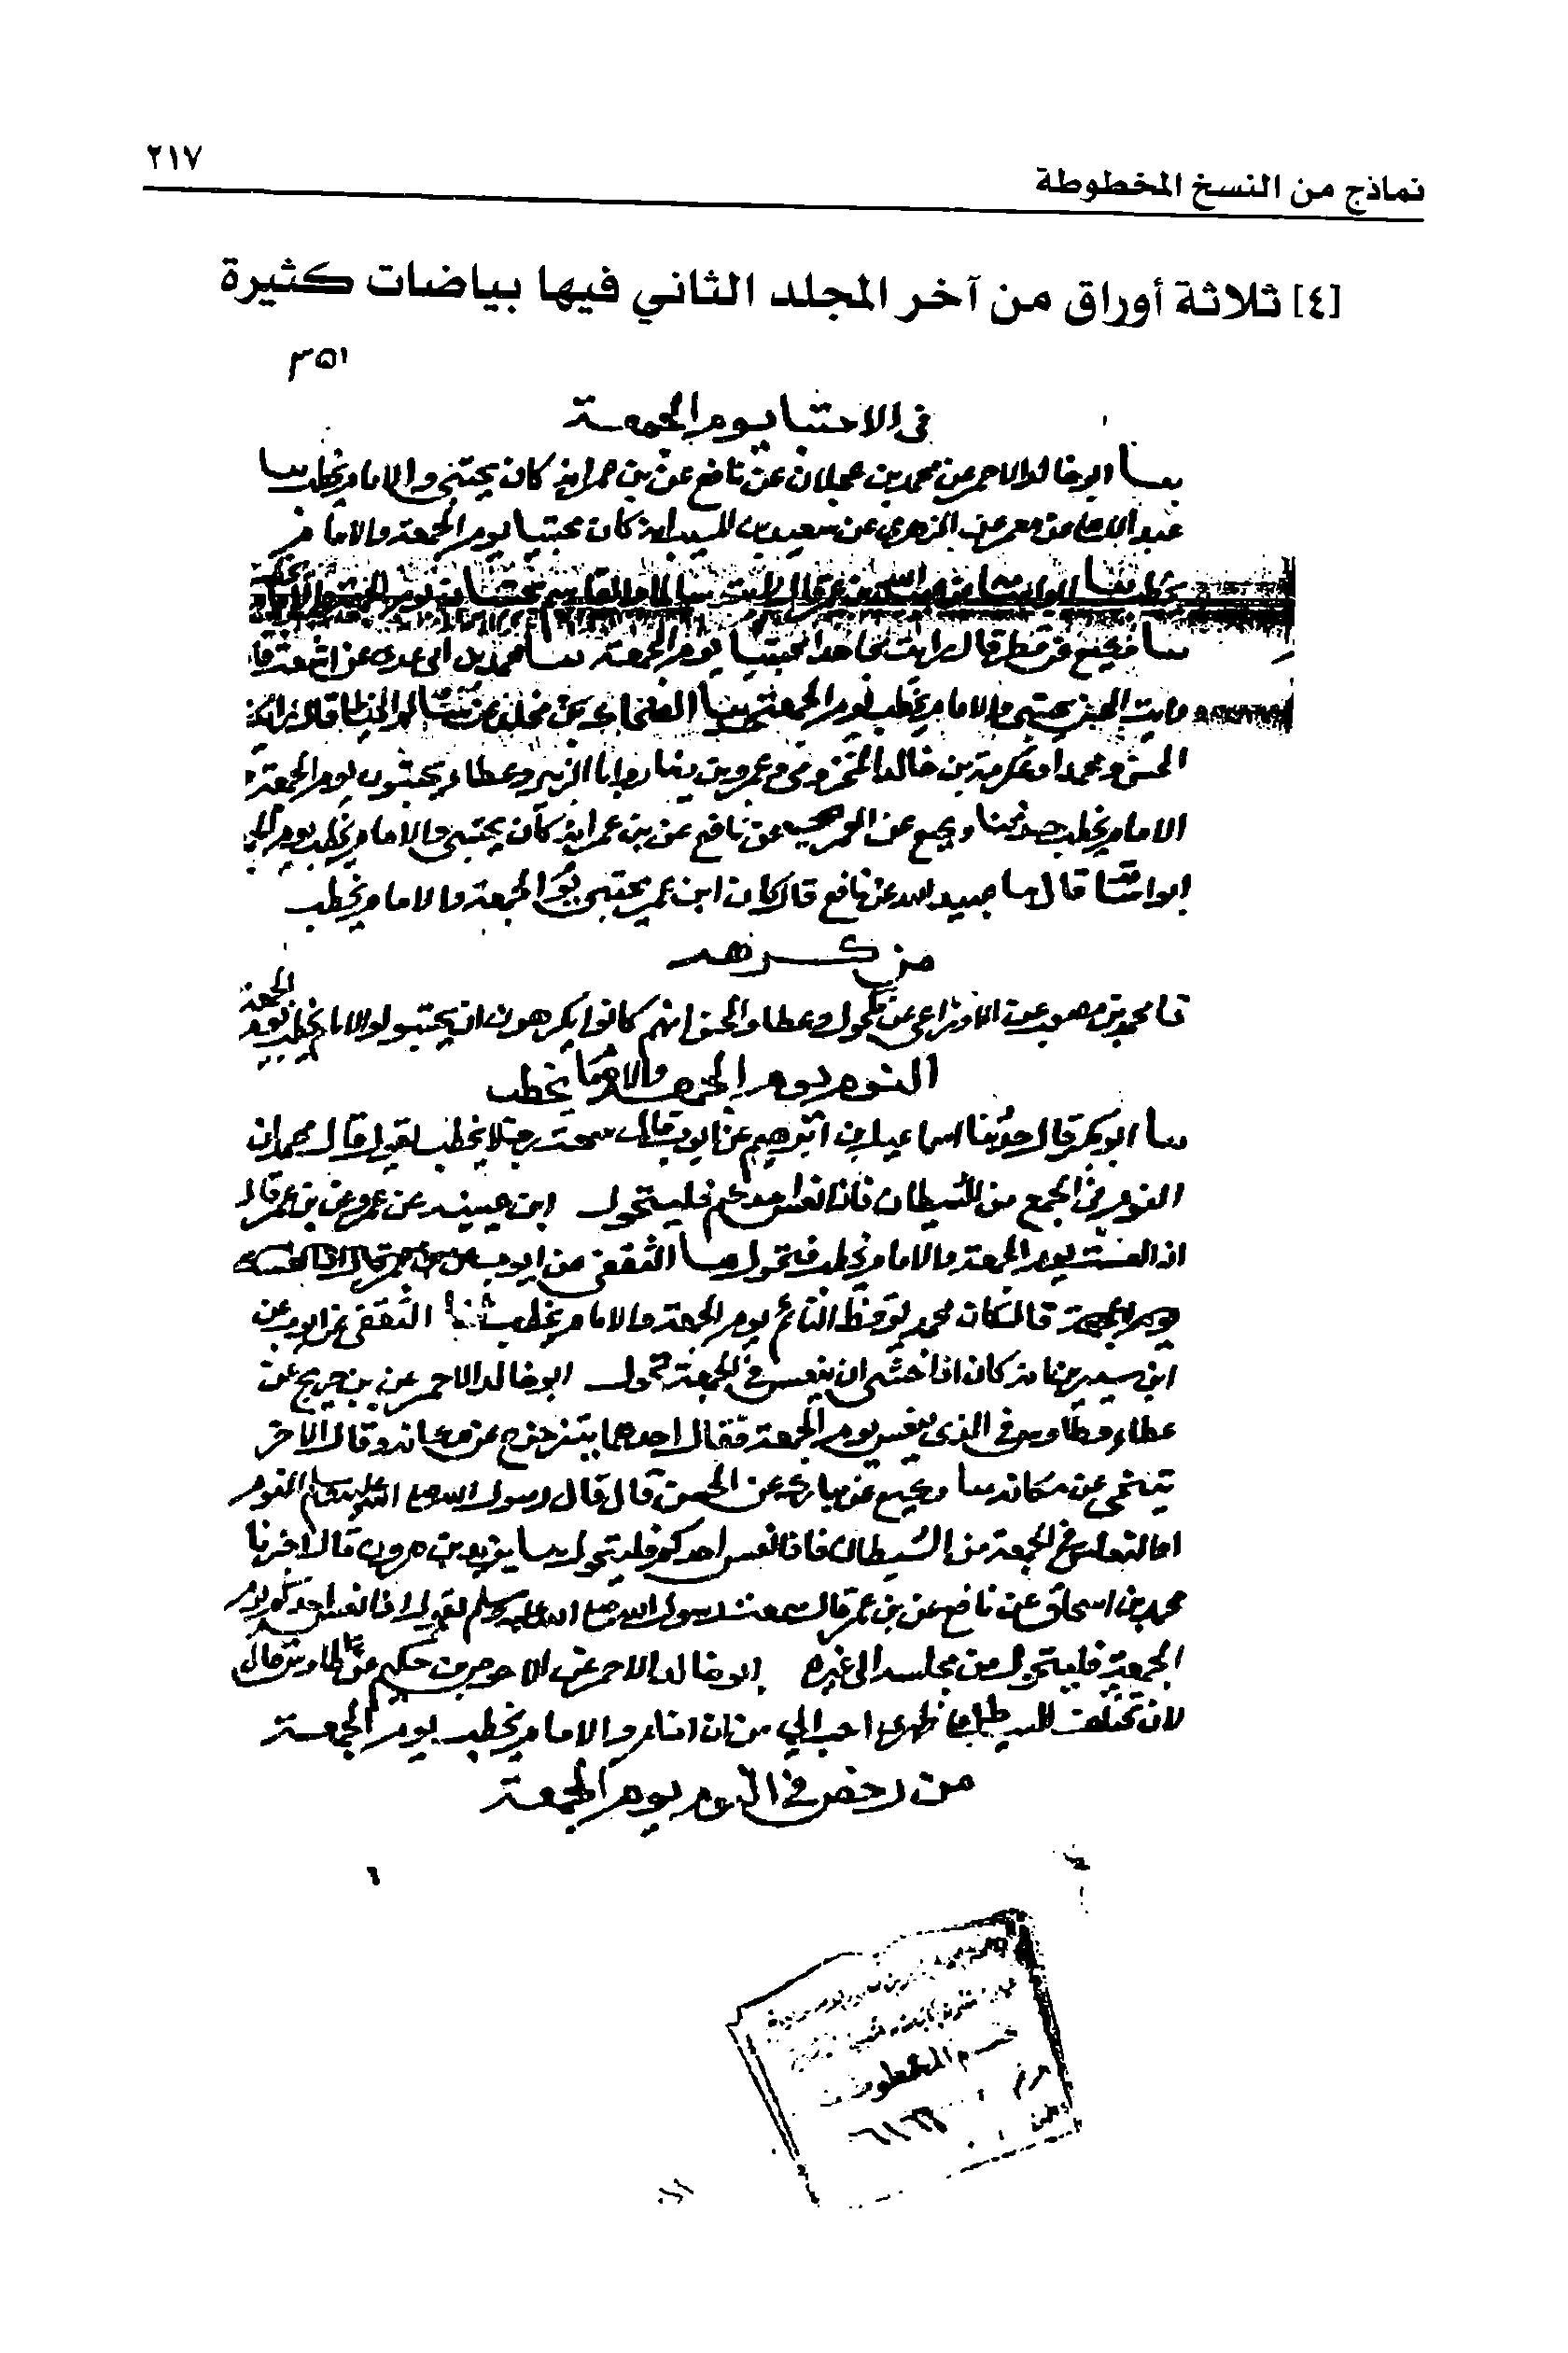 ٢١٧
نماذج من النسخ المخطوطة
[٤] ثلاثة أوراق من آخر المجلد الثاني فيها بياضات كثيرة
٣٥١
في الاحتبا يوم الجمعة
ابو خالد الاحمر عن محمد بن عجلان عن نافع عن بن عمر انه كان يحتبي والامام يخطب
عن معمر عن الزهري عن سعيد بن المسيب انه كان محتبيا يوم الجمعة والامام
يخطب
قال رايت مجاهدا محتبيا يوم الجمعة محمد بن ابي عدي عن اشعث قا
رايت الحسن يحتبي والامام يخطب يوم الجمعة الضحاك بن مخلد عن
الحسن ومحمدا وعكرمة بن خالد المخزومي وعمرو بن دينار وابا الزبير وعطا يحتبون يوم الجمعة و
الامام يخطب حدثنا وكيع عن العمري عن نافع عن بن عمر انه كان يحتبي والامام يخطب يوم
قال عبيد الله عن نافع قال كان ابن عمر يحتبي يوم الجمعة والامام يخطب
من كرهه
محمد بن مصعب عن الاوزاعي عن مكحول وعطا والحسن انهم كانوا يكرهون ان يحتبوا والامام يخطب يوم الجمعة
النوم يوم الجمعة والامام يخطب
ابو بكر قال حدثنا اسماعيل بن ابرهيم عن
النوم في الجمع من الشيطان فاذا نعس احدكم فليتحول ابن عيينه عن عمرو عن بن عمر قال
اذا نعست يوم الجمعة والامام يخطب فتحول الثقفي عن ايوب
يوم الجمعة قال كان محمد يوقظ النائم يوم الجمعة والامام يخطب الثقفي عن ايوب عن
ابن سيرين انه كان اذا خشي ان ينعس في الجمعة تحول ابو خالد الاحمر عن بن جريج عن
عطاء وطاوس في الذي ينعس يوم الجمعة فقال احدهما يتزحزح عن مكانه وقال الاخر
يتنحى عن مكانه وكيع عن مبارك عن الحسن قال قال رسول الله صلى الله عليه وسلم النوم
النعاس في الجمعة من الشيطان فاذا نعس احدكم فليتحول يزيد بن هرون قال اخبرنا
محمد بن اسحاق عن نافع عن بن عمر قال سمعت رسول الله صلى الله عليه وسلم يقول اذا نعس احدكم يوم
الجمعة فليتحول من مجلسه الى غيره ابو خالد الاحمر عن الاحوص بن حكيم عن طاوس قال
لان تختلف السياط على ظهري احب الي من ان انام والامام يخطب يوم الجمعة
من رخص في النوم يوم الجمعة
قسم المخطوطات